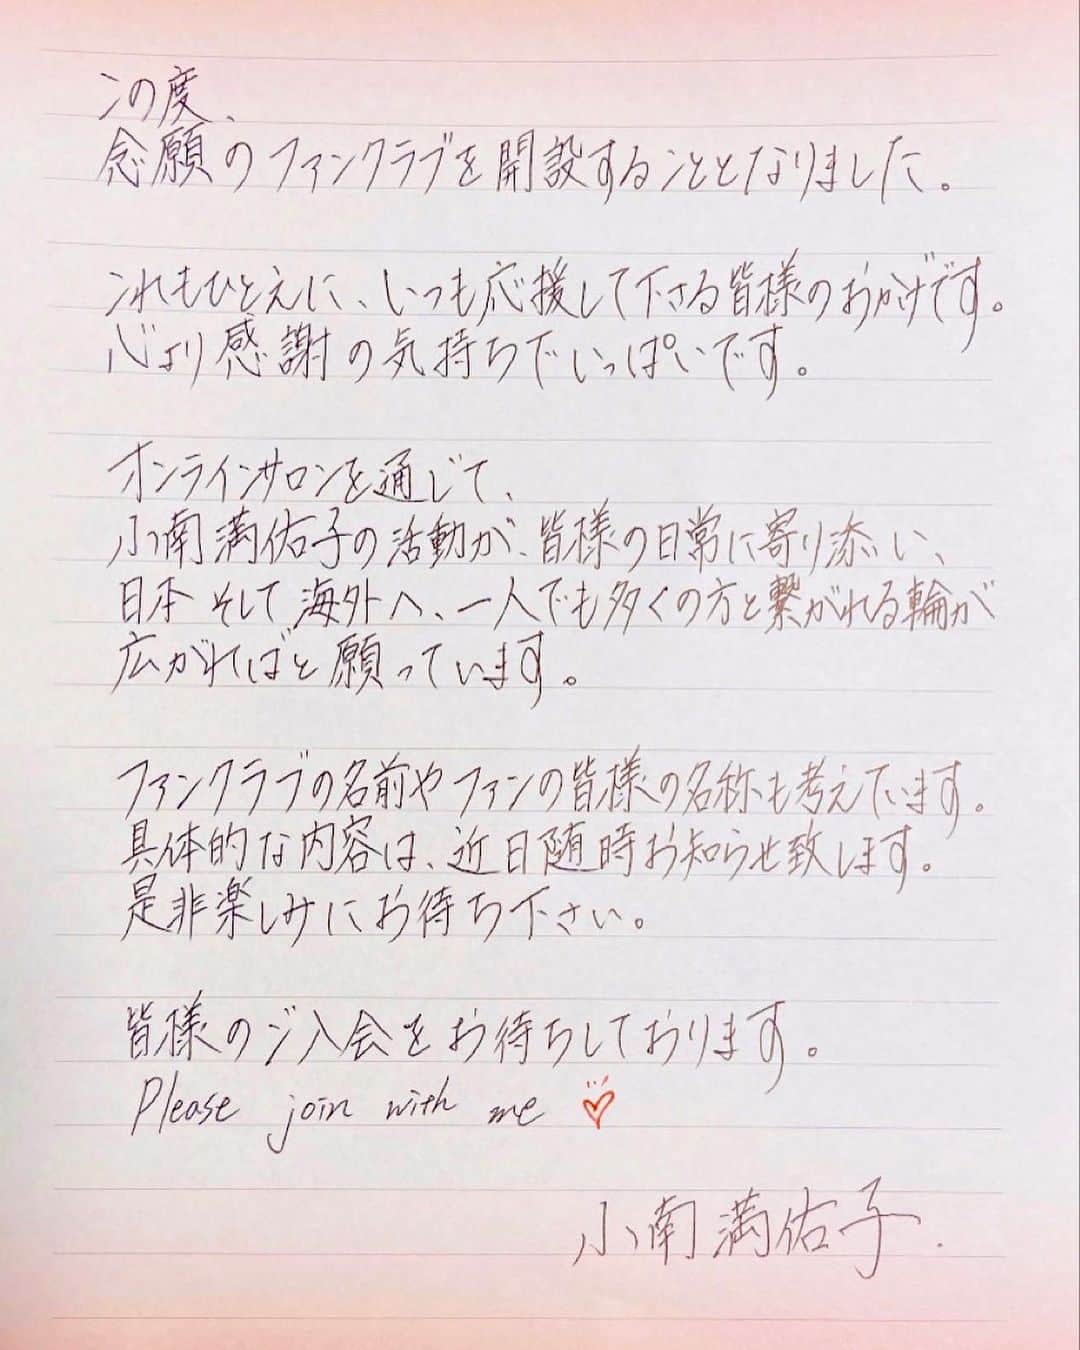 この度、
念願のファンクラブを開設することとなりました。
これもひとえに、いつも応援して下さる皆様のおかげです。
心より感謝の気持ちでいっぱいです。
オンラインサロンを通じて、
小南満佑子の活動が、皆様の日常に寄り添い、
日本そして海外へ、一人でも多くの方と繋がれる輪が
広がればと願っています。
ファンクラブの名前やファンの皆様の名称も考えています。
具体的な内容は、近日随時お知らせ致します。
是非楽しみにお待ち下さい。
皆様のご入会をお待ちしております。
Please join with me
小南満佑子.